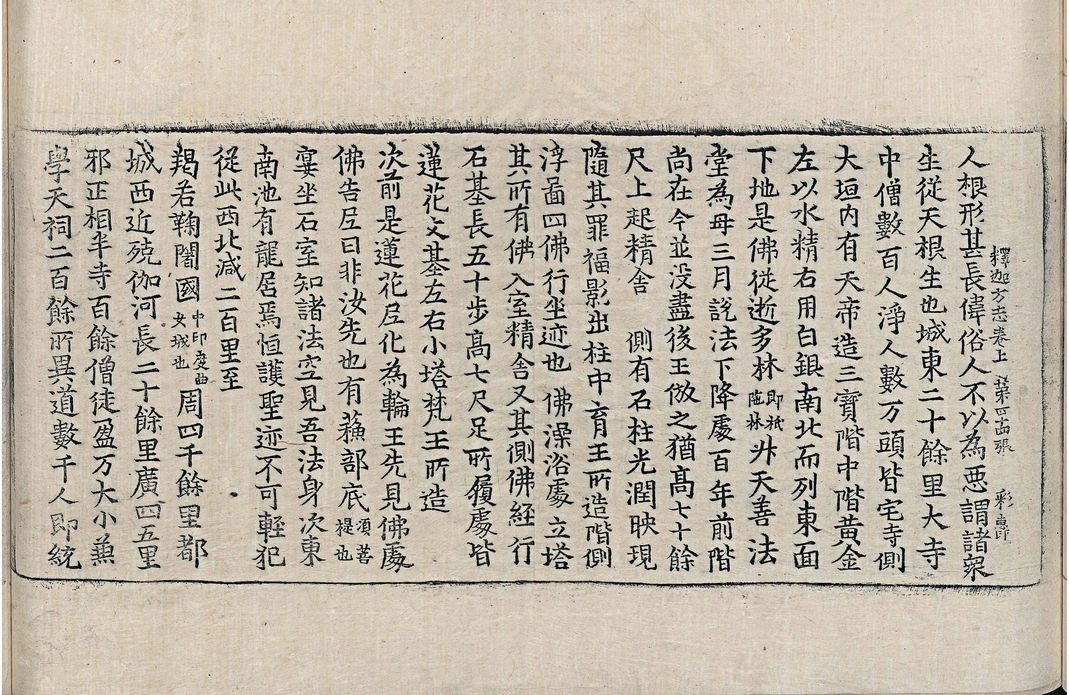 釋迦方志卷上 苐四張 彩
人根形甚長偉俗人不以為悪謂諸衆
生從天根生也城東二十餘里大寺
中僧數百人淨人數万頭皆宅寺側
大垣内有天帝造三寶階中階黄金
左以水精右用白銀南北而列東面
下地是佛從逝多林即祇陁林升天善法
堂為母三月説法下降處百年前階
尚在今並没盡後王倣之猶髙七十餘
尺上起精舎 側有石柱光潤映現
隨其罪福影出柱中育王所造階側
浮啚四佛行坐迹也 佛澡浴處立塔
其所有佛入室精舎又其側佛経行
石基長五十步髙七尺足所履處皆
蓮花文基左右小塔梵王所造
次前是蓮花尼化為輪王先見佛處
佛告尼曰非汝先也有蘓部底須菩提也
宴坐石室知諸法空見吾法身次東
南池有龍居焉恒護聖迹不可輕犯
從此西北減二百里至
羯若鞠闍國中印度曲女城也周四千餘里都
城西近殑伽河長二十餘里廣四五里
邪正相半寺百餘僧徒盈万大小兼
學天祠二百餘所異道數千人即統